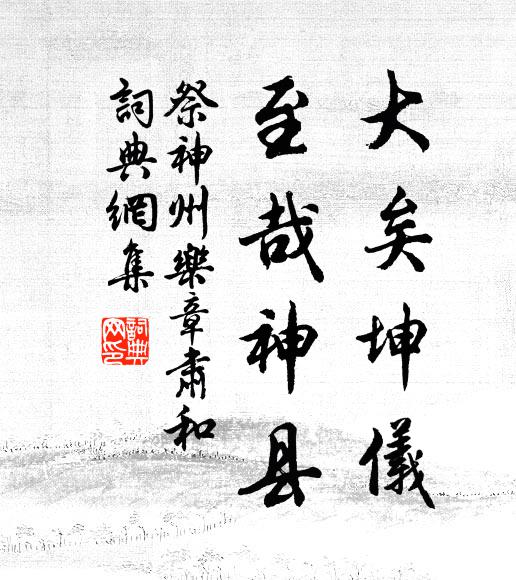 大矣坤儀
至哉神县
祭神州樂章肅和
詞典網集
詞典网印